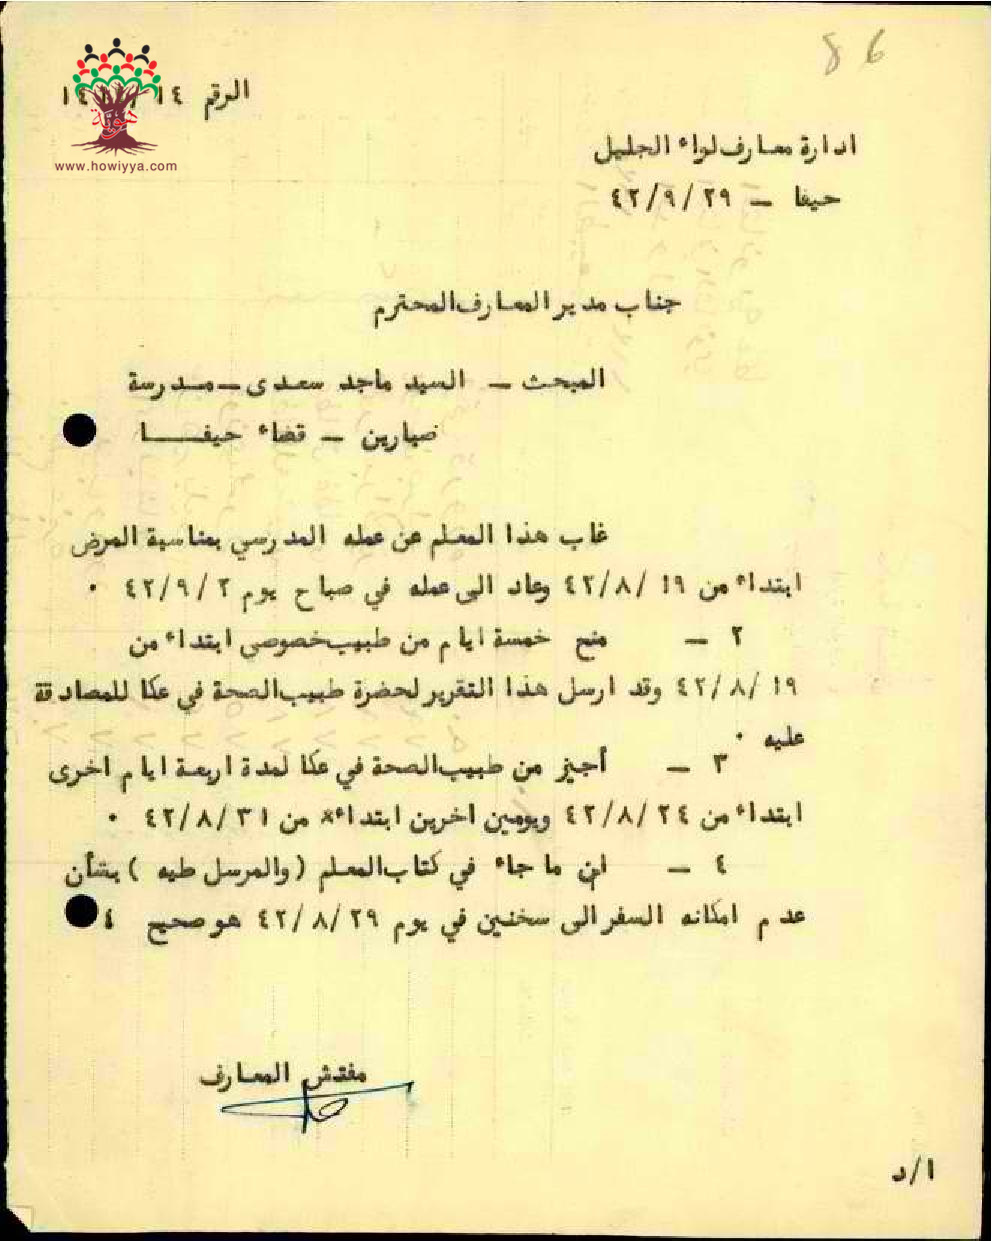 86
الرقم ١٤
هوية
www.howiyya.com
ادارة معارف لواء الجليل
حيفا – ٤٢/٩/٢٩
جناب مدير المعارف المحترم
المبحث – السيد ماجد سعدى – مدرسة
صبارين – قضاء حيفــــا
غاب هذا المعلم عن عمله المدرسي بمناسبة المرض
ابتداء من ٤٢/٨/١٩ وعاد الى عمله في صباح يوم ٤٢/٩/٢ ٠
٢ – منح خمسة ايام من طبيب خصوصي ابتداء من
٤٢/٨/١٩ وقد ارسل هذا التقرير لحضرة طبيب الصحة في عكا للمصادقة
عليه ٠
٣ – أجيز من طبيب الصحة في عكا لمدة اربعة ايام اخرى
ابتداء من ٤٢/٨/٢٤ ويومين اخرين ابتداء من ٤٢/٨/٣١ ٠
٤ – ان ما جاء في كتاب المعلم (والمرسل طيه) بشأن
عدم امكانه السفر الى سخنين في يوم ٤٢/٨/٢٩ هو صحيح ٤
مفتش المعارف
ا/د